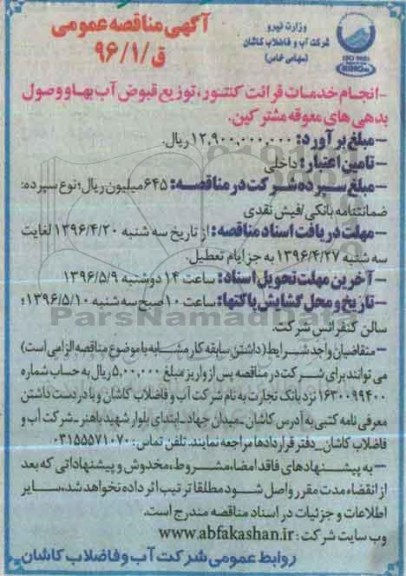 آگهی مناقصه عمومی
ق/۹۶/۱
وزارت نیرو
شرکت آب و فاضلاب کاشان
(سهامی خاص)
-انجام خدمات قرائت کنتور، توزیع قبوض آب بها و وصول
بدهی های معوقه مشترکین.
-مبلغ برآورد: ۱۲,۹۰۰,۰۰۰,۰۰۰ ریال.
-تامین اعتبار: داخلی
-مبلغ سپرده شرکت در مناقصه: ۶۴۵ میلیون ریال؛ نوع سپرده:
ضمانتنامه بانکی/فیش نقدی
-مهلت دریافت اسناد مناقصه: از تاریخ سه شنبه ۱۳۹۶/۴/۲۰ لغایت
سه شنبه ۱۳۹۶/۴/۲۷ به جز ایام تعطیل.
-آخرین مهلت تحویل اسناد: ساعت ۱۴ دوشنبه ۱۳۹۶/۵/۹
-تاریخ و محل گشایش پاکتها: ساعت ۱۰ صبح سه شنبه ۱۳۹۶/۵/۱۰؛
سالن کنفرانس شرکت.
ParsNamadData
-متقاضیان واجد شرایط (داشتن سابقه کار مشابه با موضوع مناقصه الزامی است)
می توانند برای شرکت در مناقصه پس از واریز مبلغ ۵۰۰,۰۰۰ ریال به حساب شماره
۱۶۳۰۰۹۹۴۰۰ نزد بانک تجارت به نام شرکت آب و فاضلاب کاشان و با در دست داشتن
معرفی نامه کتبی به آدرس کاشان_میدان جهاد_ابتدای بلوار شهید باهنر_شرکت آب و
فاضلاب کاشان_دفتر قراردادها مراجعه نمایند. تلفن تماس: ۰۳۱۵۵۵۷۱۰۷۰
-به پیشنهادهای فاقد امضاء، مشروط، مخدوش و پیشنهاداتی که بعد
از انقضاء مدت مقرر واصل شود مطلقا ترتیب اثر داده نخواهد شد، سایر
اطلاعات و جزئیات در اسناد مناقصه مندرج است.
وب سایت شرکت: www.abfakashan.ir
روابط عمومی شرکت آب و فاضلاب کاشان